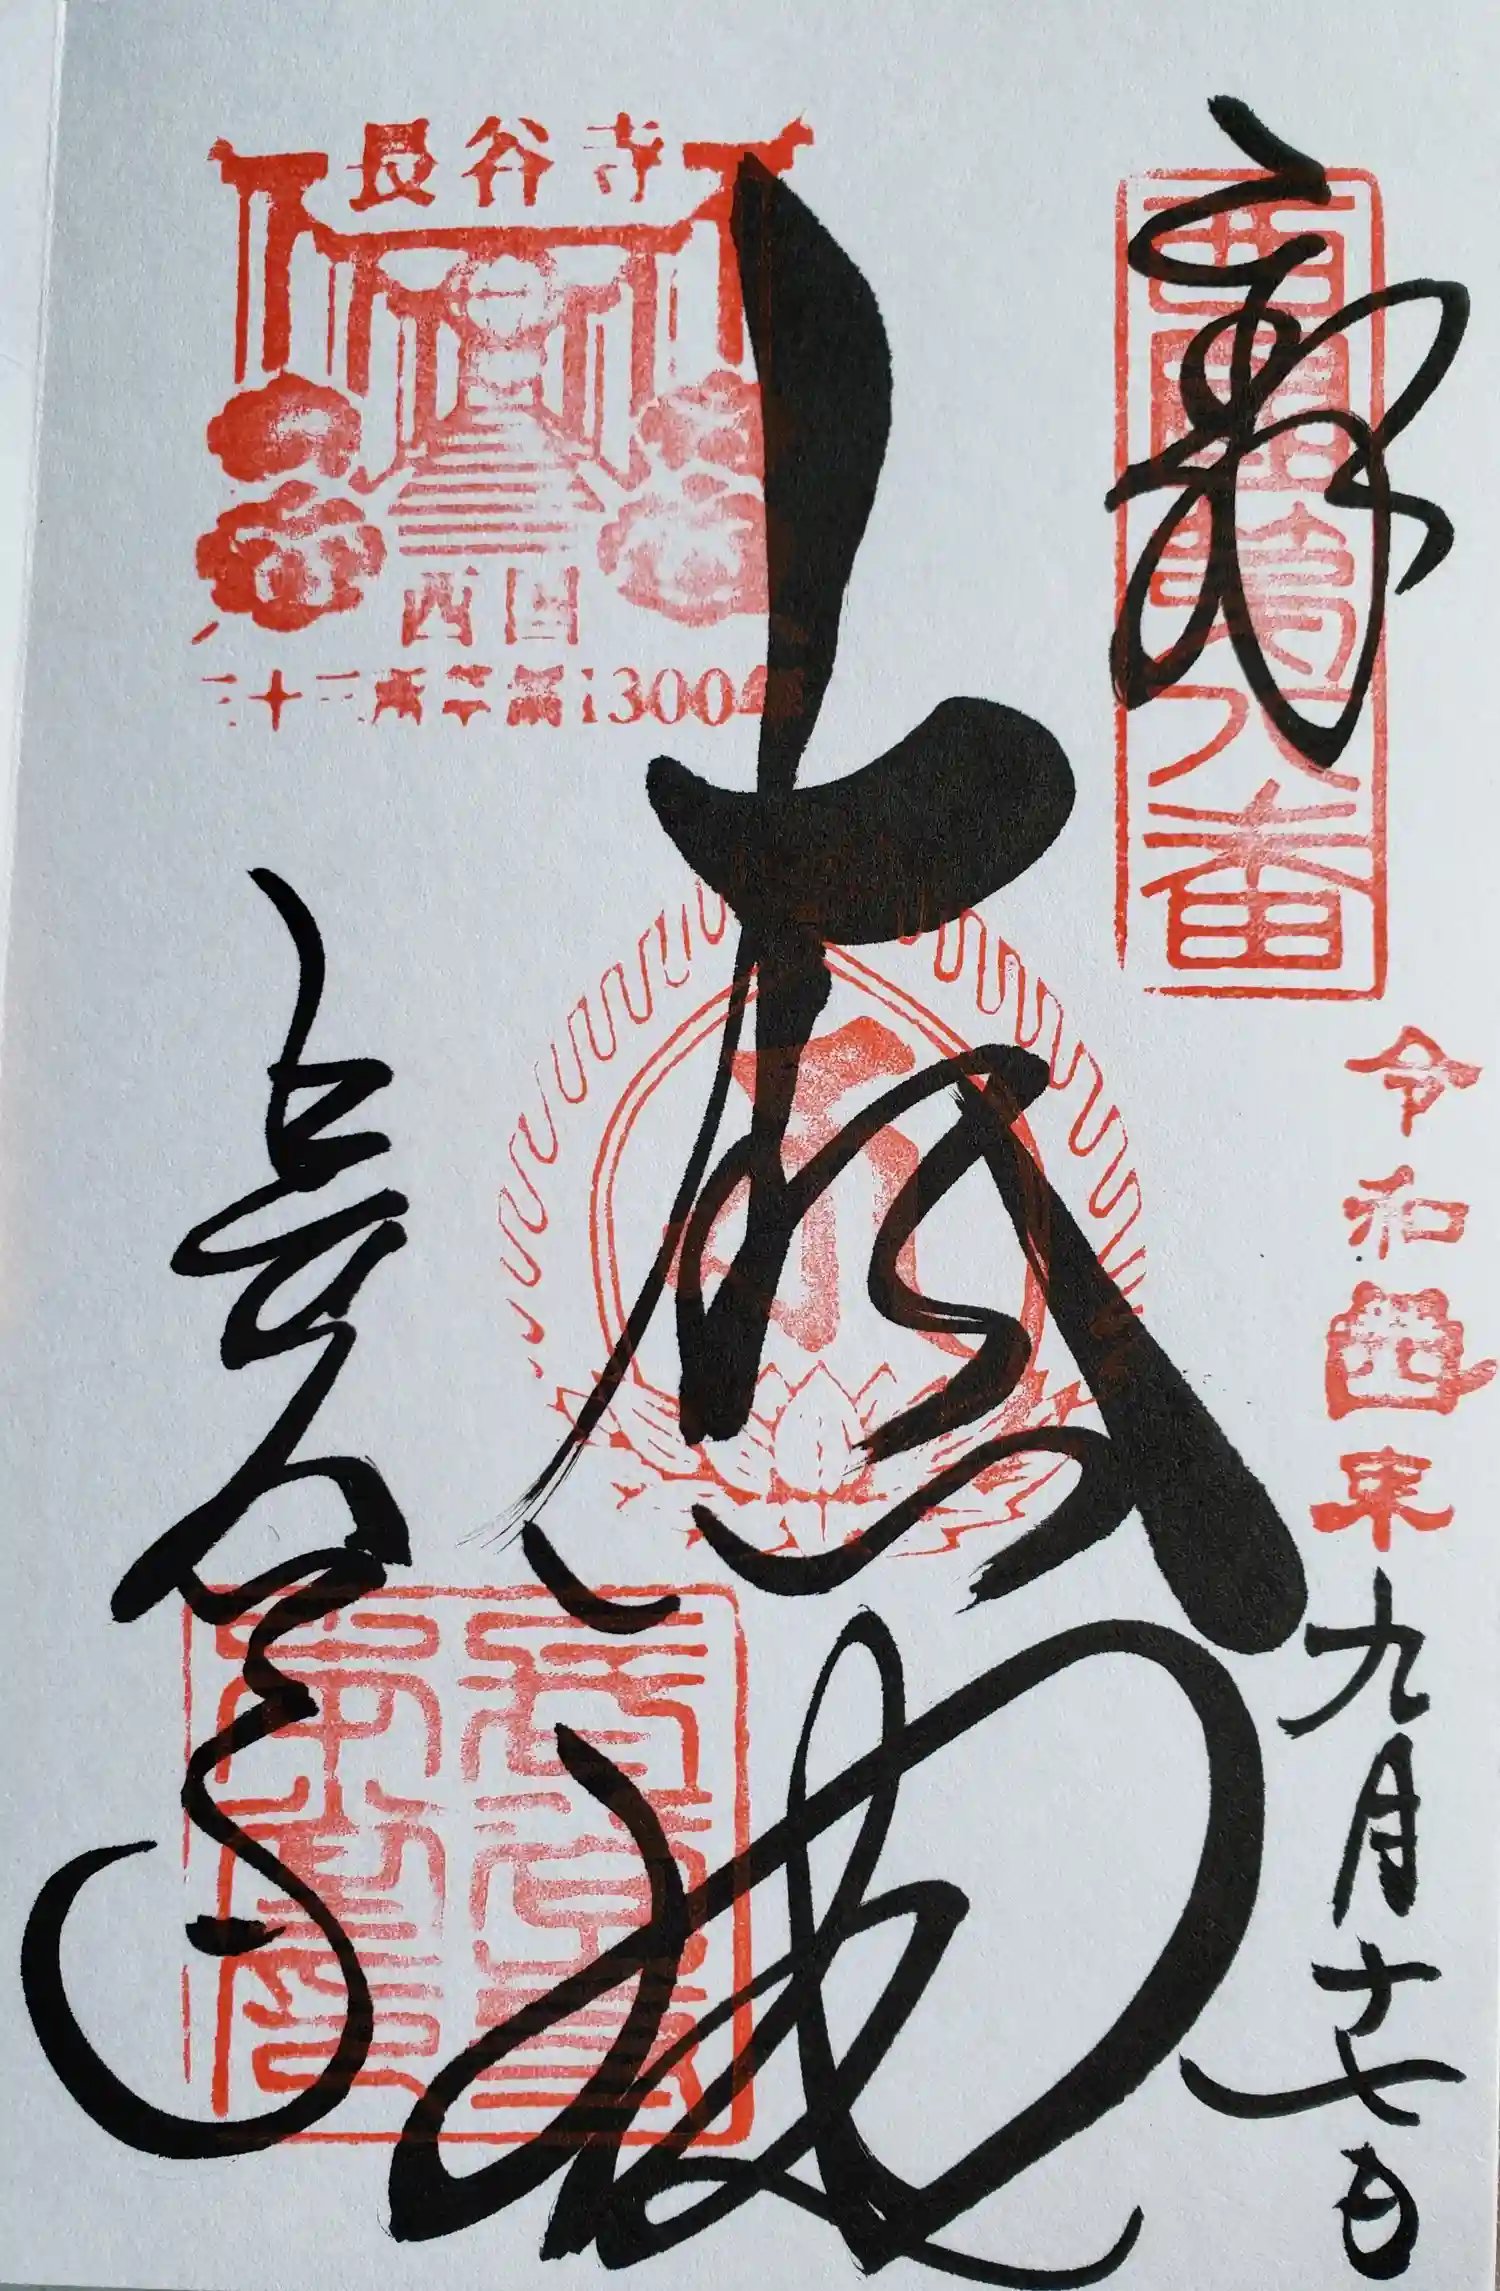 奉拝
西國第八番
令和四年九月十七日
大悲閣
長谷寺
西国
三十三所草創1300年
長谷寺